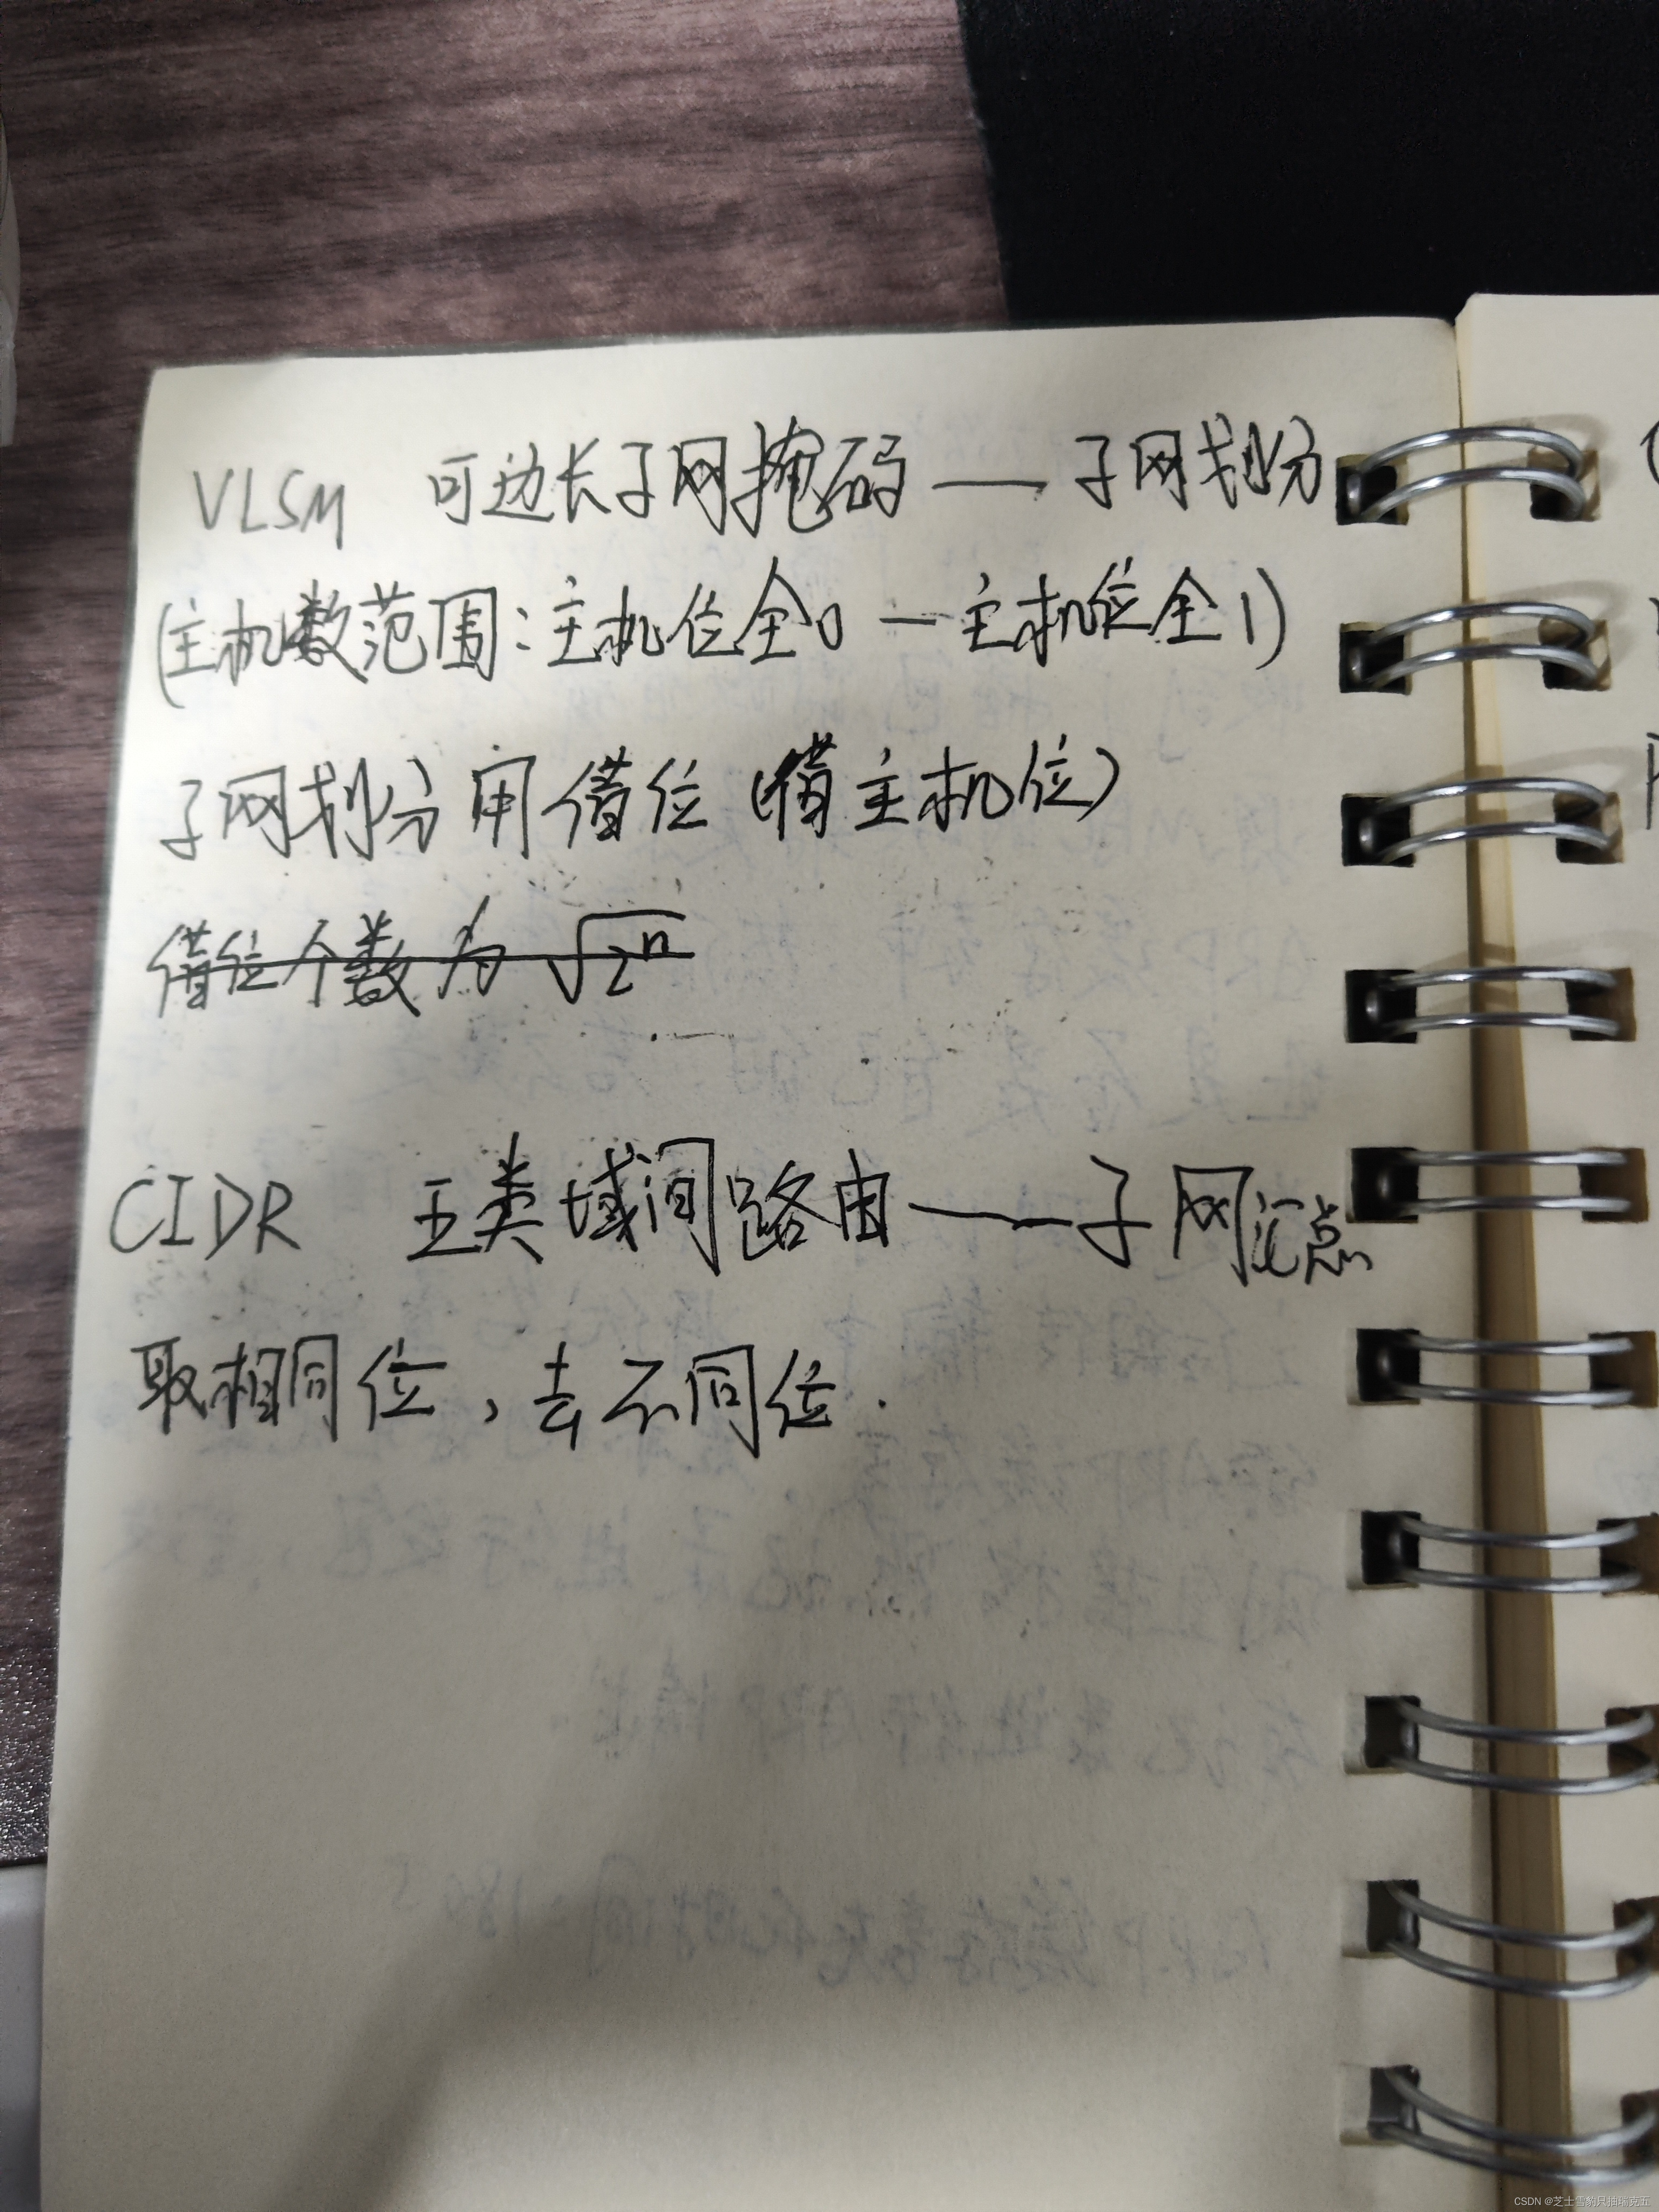 VLSM 可边长子网掩码 — 子网划分
(主机数范围:主机位全0 — 主机位全1)
子网划分用借位(借主机位)
借位个数为 √2ⁿ
CIDR 五类域间路由 — 子网汇总
取相同位,去不同位.
CSDN @芝士雪豹只抽瑞克五